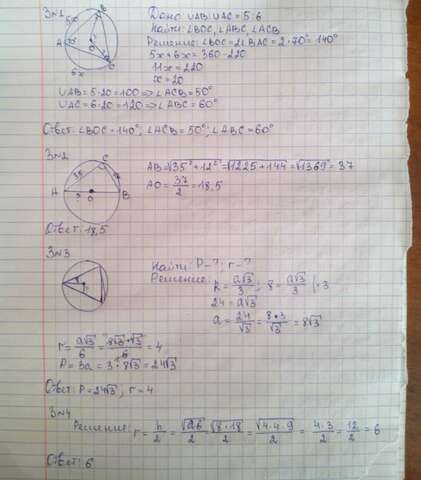 3№1
Дано ∪AB:∪AC = 5:6
Найти: ∠BOC, ∠ABC, ∠ACB
Решение: ∠BOC = 2∠BAC = 2·70° = 140°
5x+6x = 360-220
11x = 220
x = 20
∪AB = 5·20 = 100 ⇒ ∠ACB = 50°
∪AC = 6·20 = 120 ⇒ ∠ABC = 60°
Ответ: ∠BOC = 140°; ∠ACB = 50°; ∠ABC = 60°
3№2
AB = √35²+12² = √1225+144 = √1369 = 37
AO = 37/2 = 18,5
Ответ: 18,5
3№3
Найти: P-?; r-?
Решение:
R = a√3/3; 8 = a√3/3 |·3
24 = a√3
a = 24/√3 = 8·3/√3 = 8√3
r = a√3/6 = 8√3·√3/6 = 4
P = 3a = 3·8√3 = 24√3
Ответ: P = 24√3; r = 4
3№4
Решение: r = h/2 = √ab/2 = √8·18/2 = √4·4·9/2 = 4·3/2 = 12/2 = 6
Ответ: 6